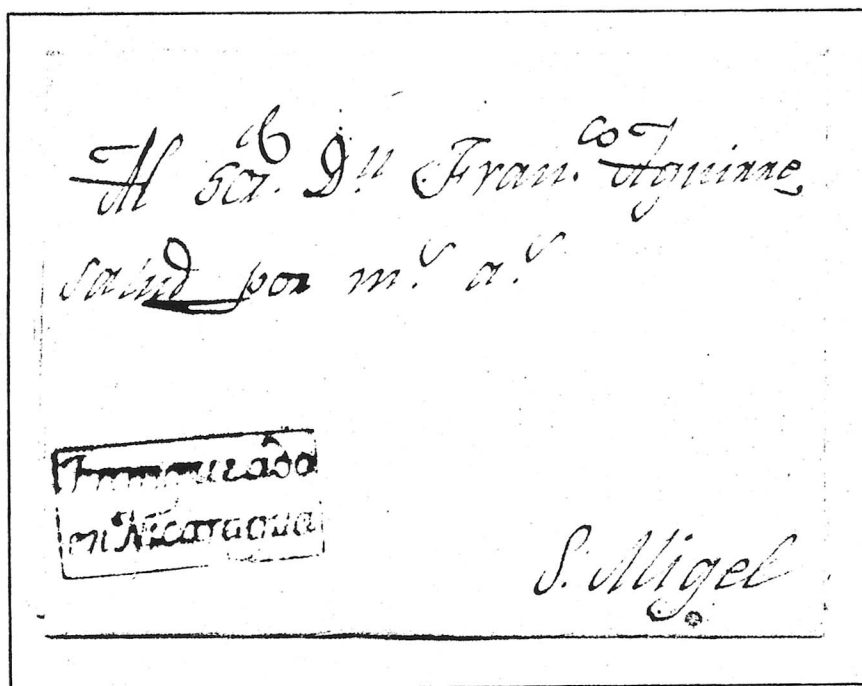 Al Sor. Dn Fran.co Aguirre
salud por m.s a.s
Franqueado
en Nicaragua
S. Migel